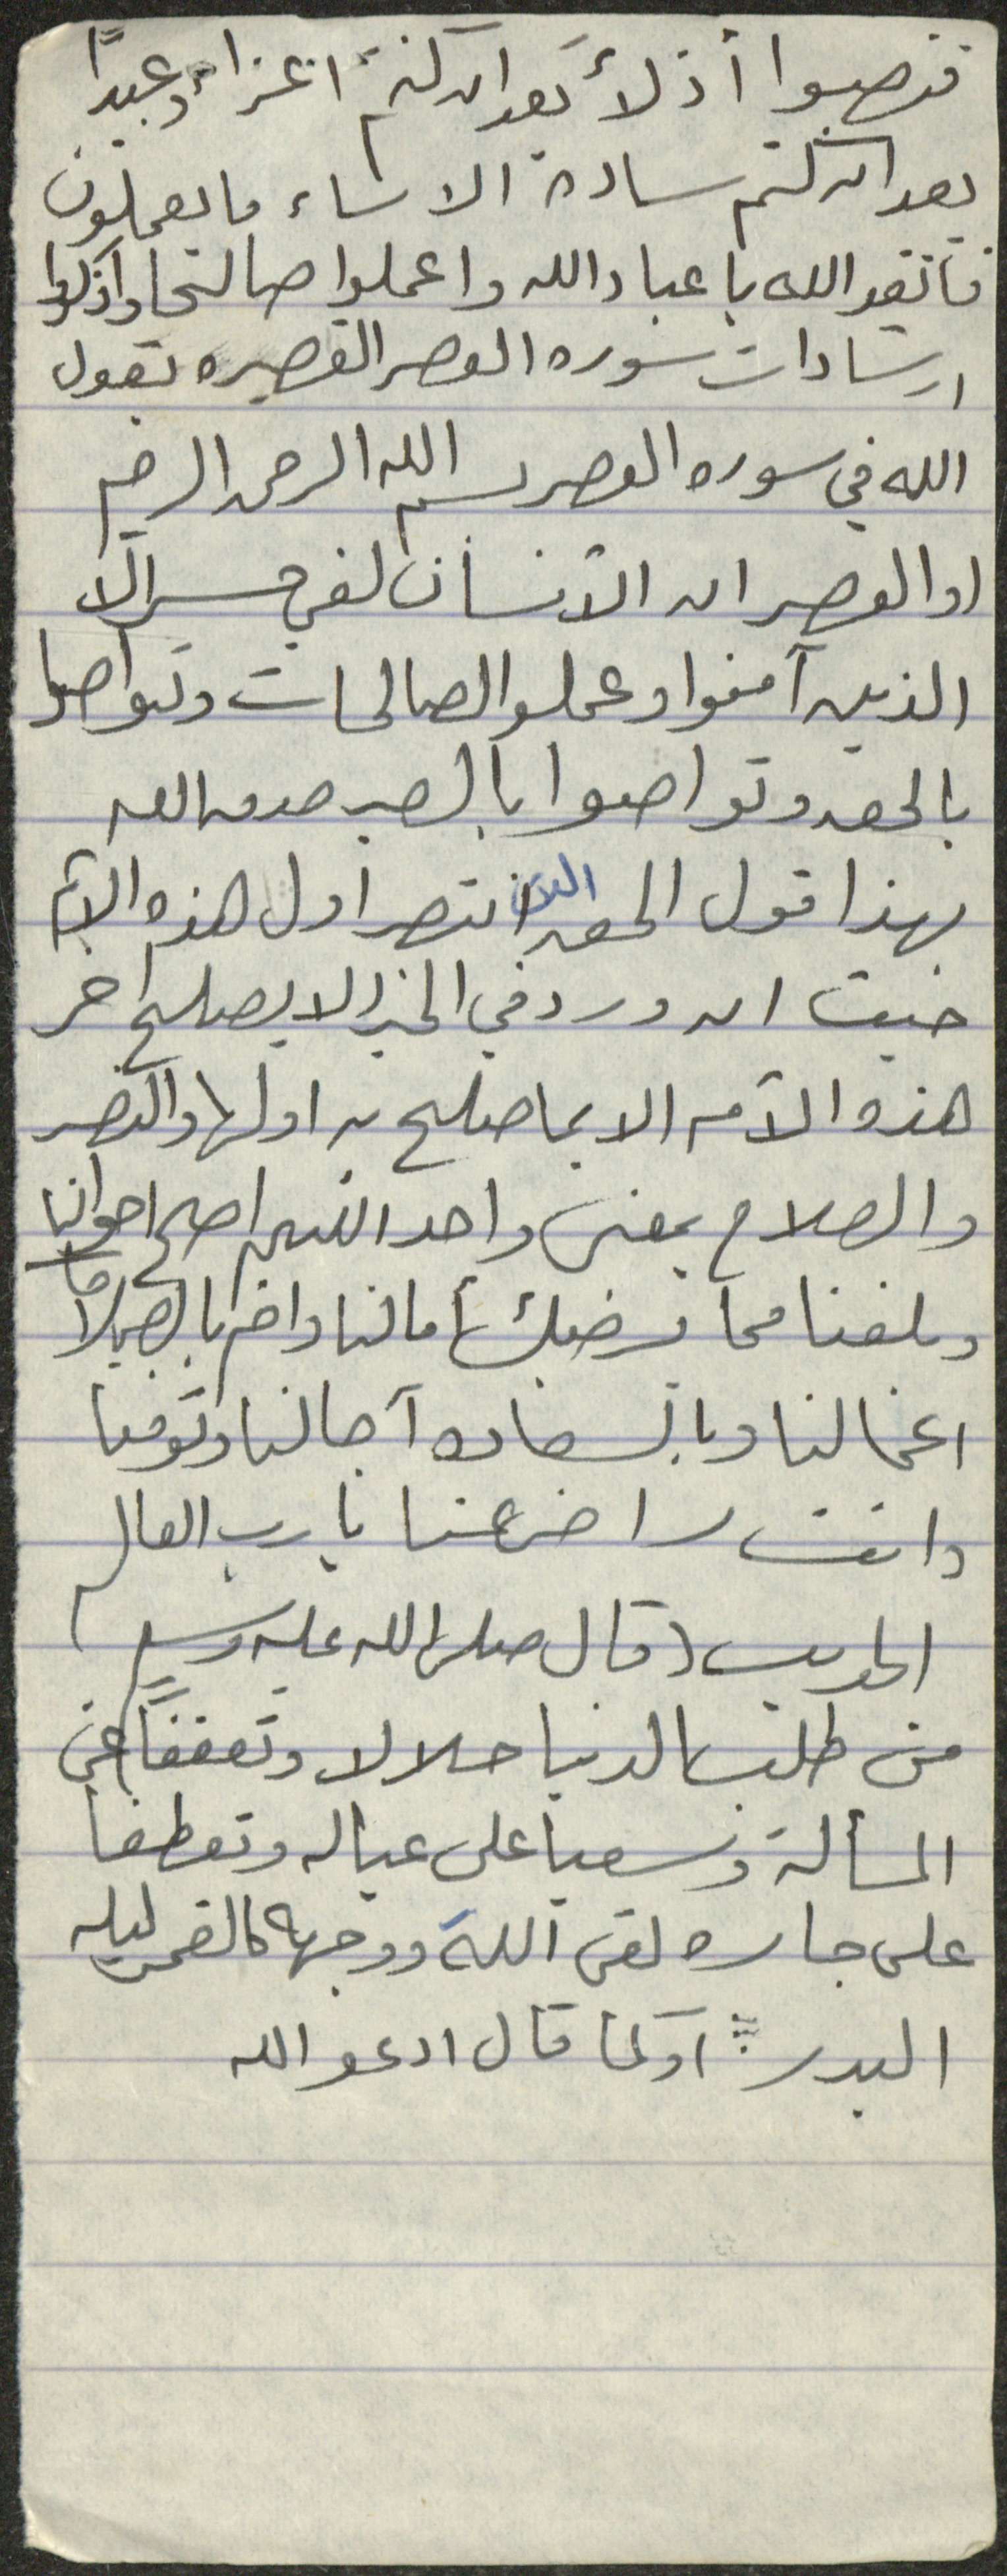 فتصبحوا أذلأَ بعد ان كنتم اعزاء وعبيدًا
بعد ان كنتم سادة الا ساء ما يعملون
فاتقو الله يا عباد الله واعملوا صالحا واذكروا
ارشادات سوره العصر القصيره تقول
الله في سوره العصر بسم الله الرحمن الرحيم
او العصر ان الانسان لفي خسر الا
الذين آمنوا وعملو الصالحات وتواصوا
بالحق وتواصوا بالصبر صدق الله
بهذا قول الحق انتصر اول هذه الامه
حيث ان ورد في الخبر لا يصلح اخر
هذه الامه الا بما صلح به اولها والنصر
والصلاح بمعنى واحد اللهم اصلح احوالنا
وبلغنا مما يرضيك أمالنا واختم بالصالحات
اعمالنا وبالسعاده آجالنا وتوفنا
وانت راض عنا يا رب العالم
الحديث (قال صلى الله عليه وسلم)
من طلب الدنيا حلالا وتعففًا عن
المسألة وسعيا على عياله وتعطفا
على جاره لقى الله ووجهه كالقمر ليله
البدر اوكما قال ادعو الله